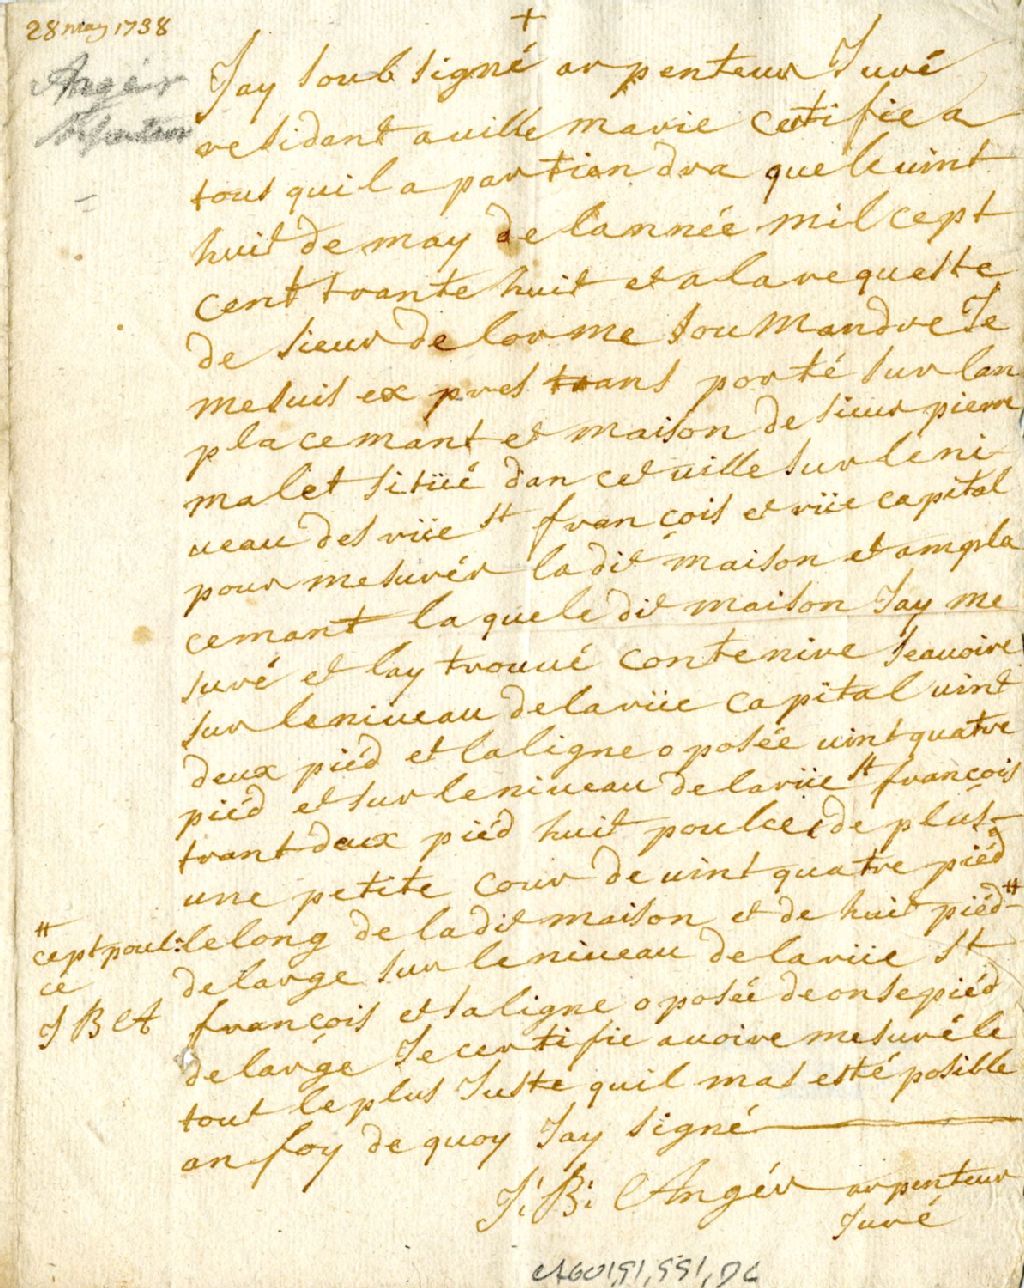 28 may 1738
Angér
Arpenteur
+
Jay soub signé arpenteur Juré
residant a ville marie certifie a
tous qui la partiendra que le vint
huit de may de lannée mil cept
cent trante huit et a la requeste
de sieur de lorme sou Mandre Je
me suis ex pres trans porté sur lan
placemant et maison de sieur pierre
malet sitüé dan cet ville sur le ni
ueau des rüe st françois et rüe capital
pour mesurér ladit maison et ampla
cemant laquele dit maison Jay me
suré et lay trouué contenire Seauoire
sur leniueau delarüe capital uint
deux piéd et laligne oposée uint quatre
piéd et sur leniueau delarüe st francois
trant deux piéd huit poulce de plus
une petite cour de uint quatre piéd
le long de ladit maison et de huit piéd #
# cept poul:
ce
J B A
delarge sur leniueau delarüe St
françois et saligne oposée de onse piéd
de largé Je certifie auoire mesuré le
tout le plus Juste quil mas esté posible
an foy de quoy Jay signé
J: B: Angér arpenteur
Juré
A60191,551,DC